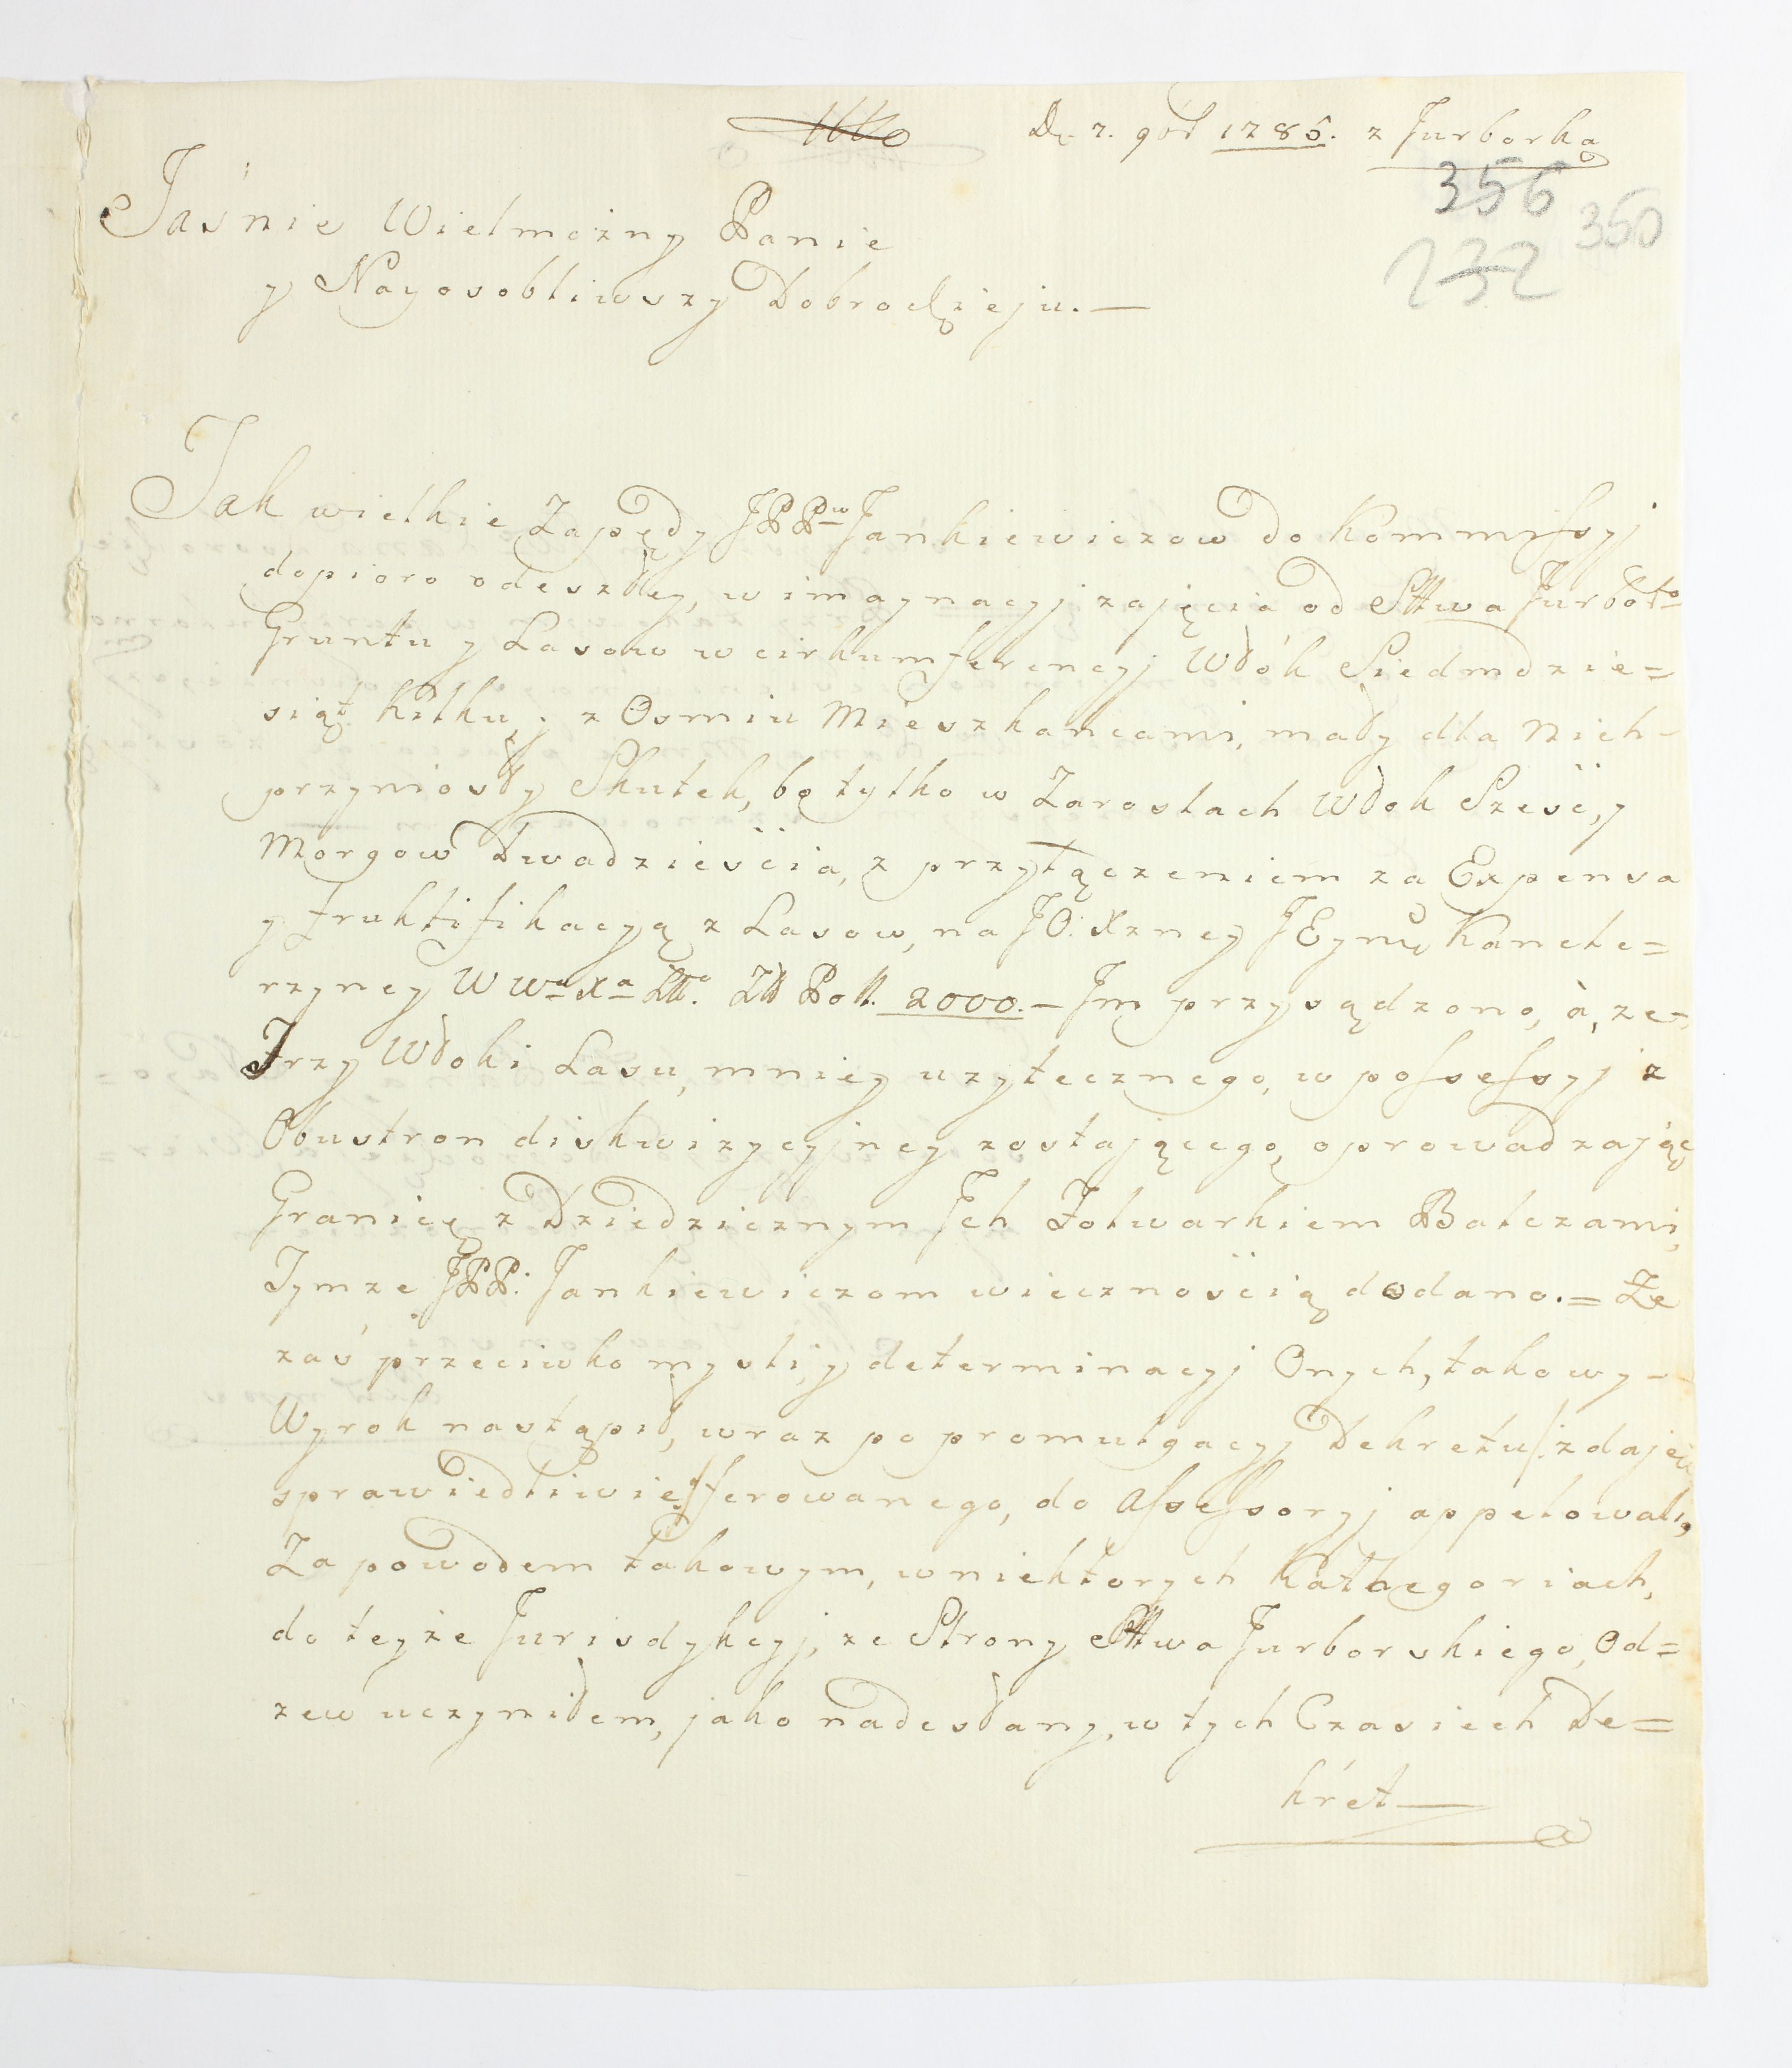 D. 7. 9br 1785. z Jurborka
356
350
232
Jaśnie Wielmożny Panie
y Nayosobliwszy Dobrodzieju. —
Jak wielkie Zapędy JPPw Jankiewiczow do Kommissyj
dopioro odeszłey, w imaynacyj zajęcia od Sttwa Jurborgo
Gruntu y Lasow w cirkumferencyj Włók Siedmdzie=
siąt kilku, z Osmiu Mieszkańcami, mały dla Nich-
przyniosły Skutek, bo tylko w Zaroslach Włok Sześć, y
Morgow Dwadzieścia, z przyłączeniem za Expensa
y fruktifikacyą z Lasow, na JO: Xzney JEynu Kancle=
rzyney W Wo Xa Litto. Zll Poll. 2000. — Im przysądzono, à, że-
Trzy Włoki Lasu, mniey uzytecznego, w possessyj z
Obustron diskwizycyjney zostającego, oprowadzając
Granicę z Dziedzicznym Ich Folwarkiem Balczami,
Tymże JPP: Jankiewiczom wiecznością dodano. = Że
zaś przeciwko mysli, y determinacyj Onych, takowy-
Wyrok nastąpił, wraz po promulgacyj Dekretu /: zdaje się
sprawiedliwie :/ ferowanego, do Assessoryj appelowali,
Za powodem takowym, w niektorych Kathegoriach,
do teyże Jurisdykcyj, ze Strony Sttwa Jurborskiego, Od=
zew uczyniłem, jako nadesłany, w tych Czasiech De=
kret —